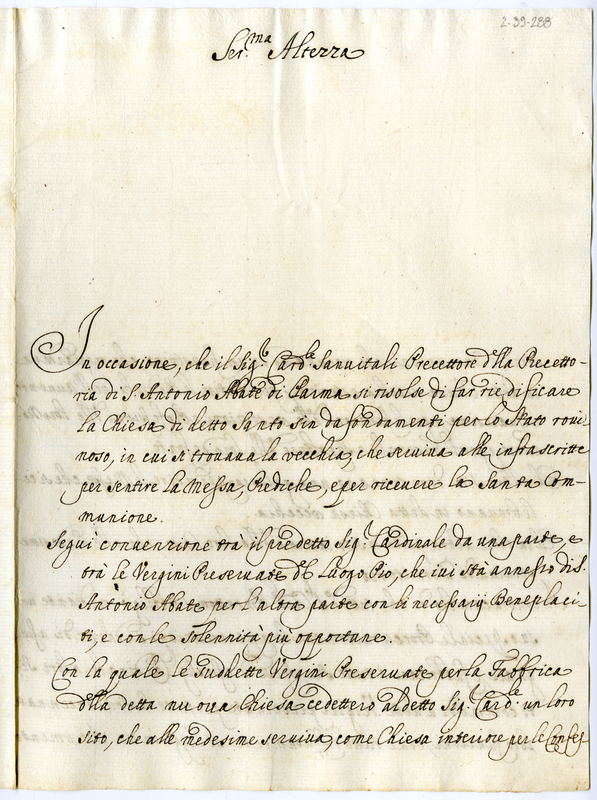 2-39-288
Ser.ma Altezza
In occasione, che il Sig.r Card.le Sanvitali Precettore d'lla Precetto-
ria di S. Antonio Abate di Parma si risolse di far riedificare
la Chiesa di detto Santo sin da fondamenti per lo stato rovi-
noso, in cui si trovava la vecchia, che serviva alle infrascritte
per sentire la Messa, Prediche, e per ricevere la Santa Com-
munione.
Seguì convenzione trà il predetto Sig.r Cardinale da una parte, e
trà le Vergini Preservate d'l Luogo Pio, che ivi stà annesso di S.
Antonio Abate per l'altra parte con li necessarij Beneplaci-
ti, e con le solennità più opportune.
Con la quale le suddette Vergini Preservate per la Fabbrica
d'lla detta nuova Chiesa cedettero al detto Sig.r Card.e un loro
sito, che alle medesime serviva, come Chiesa interiore per le Confes-